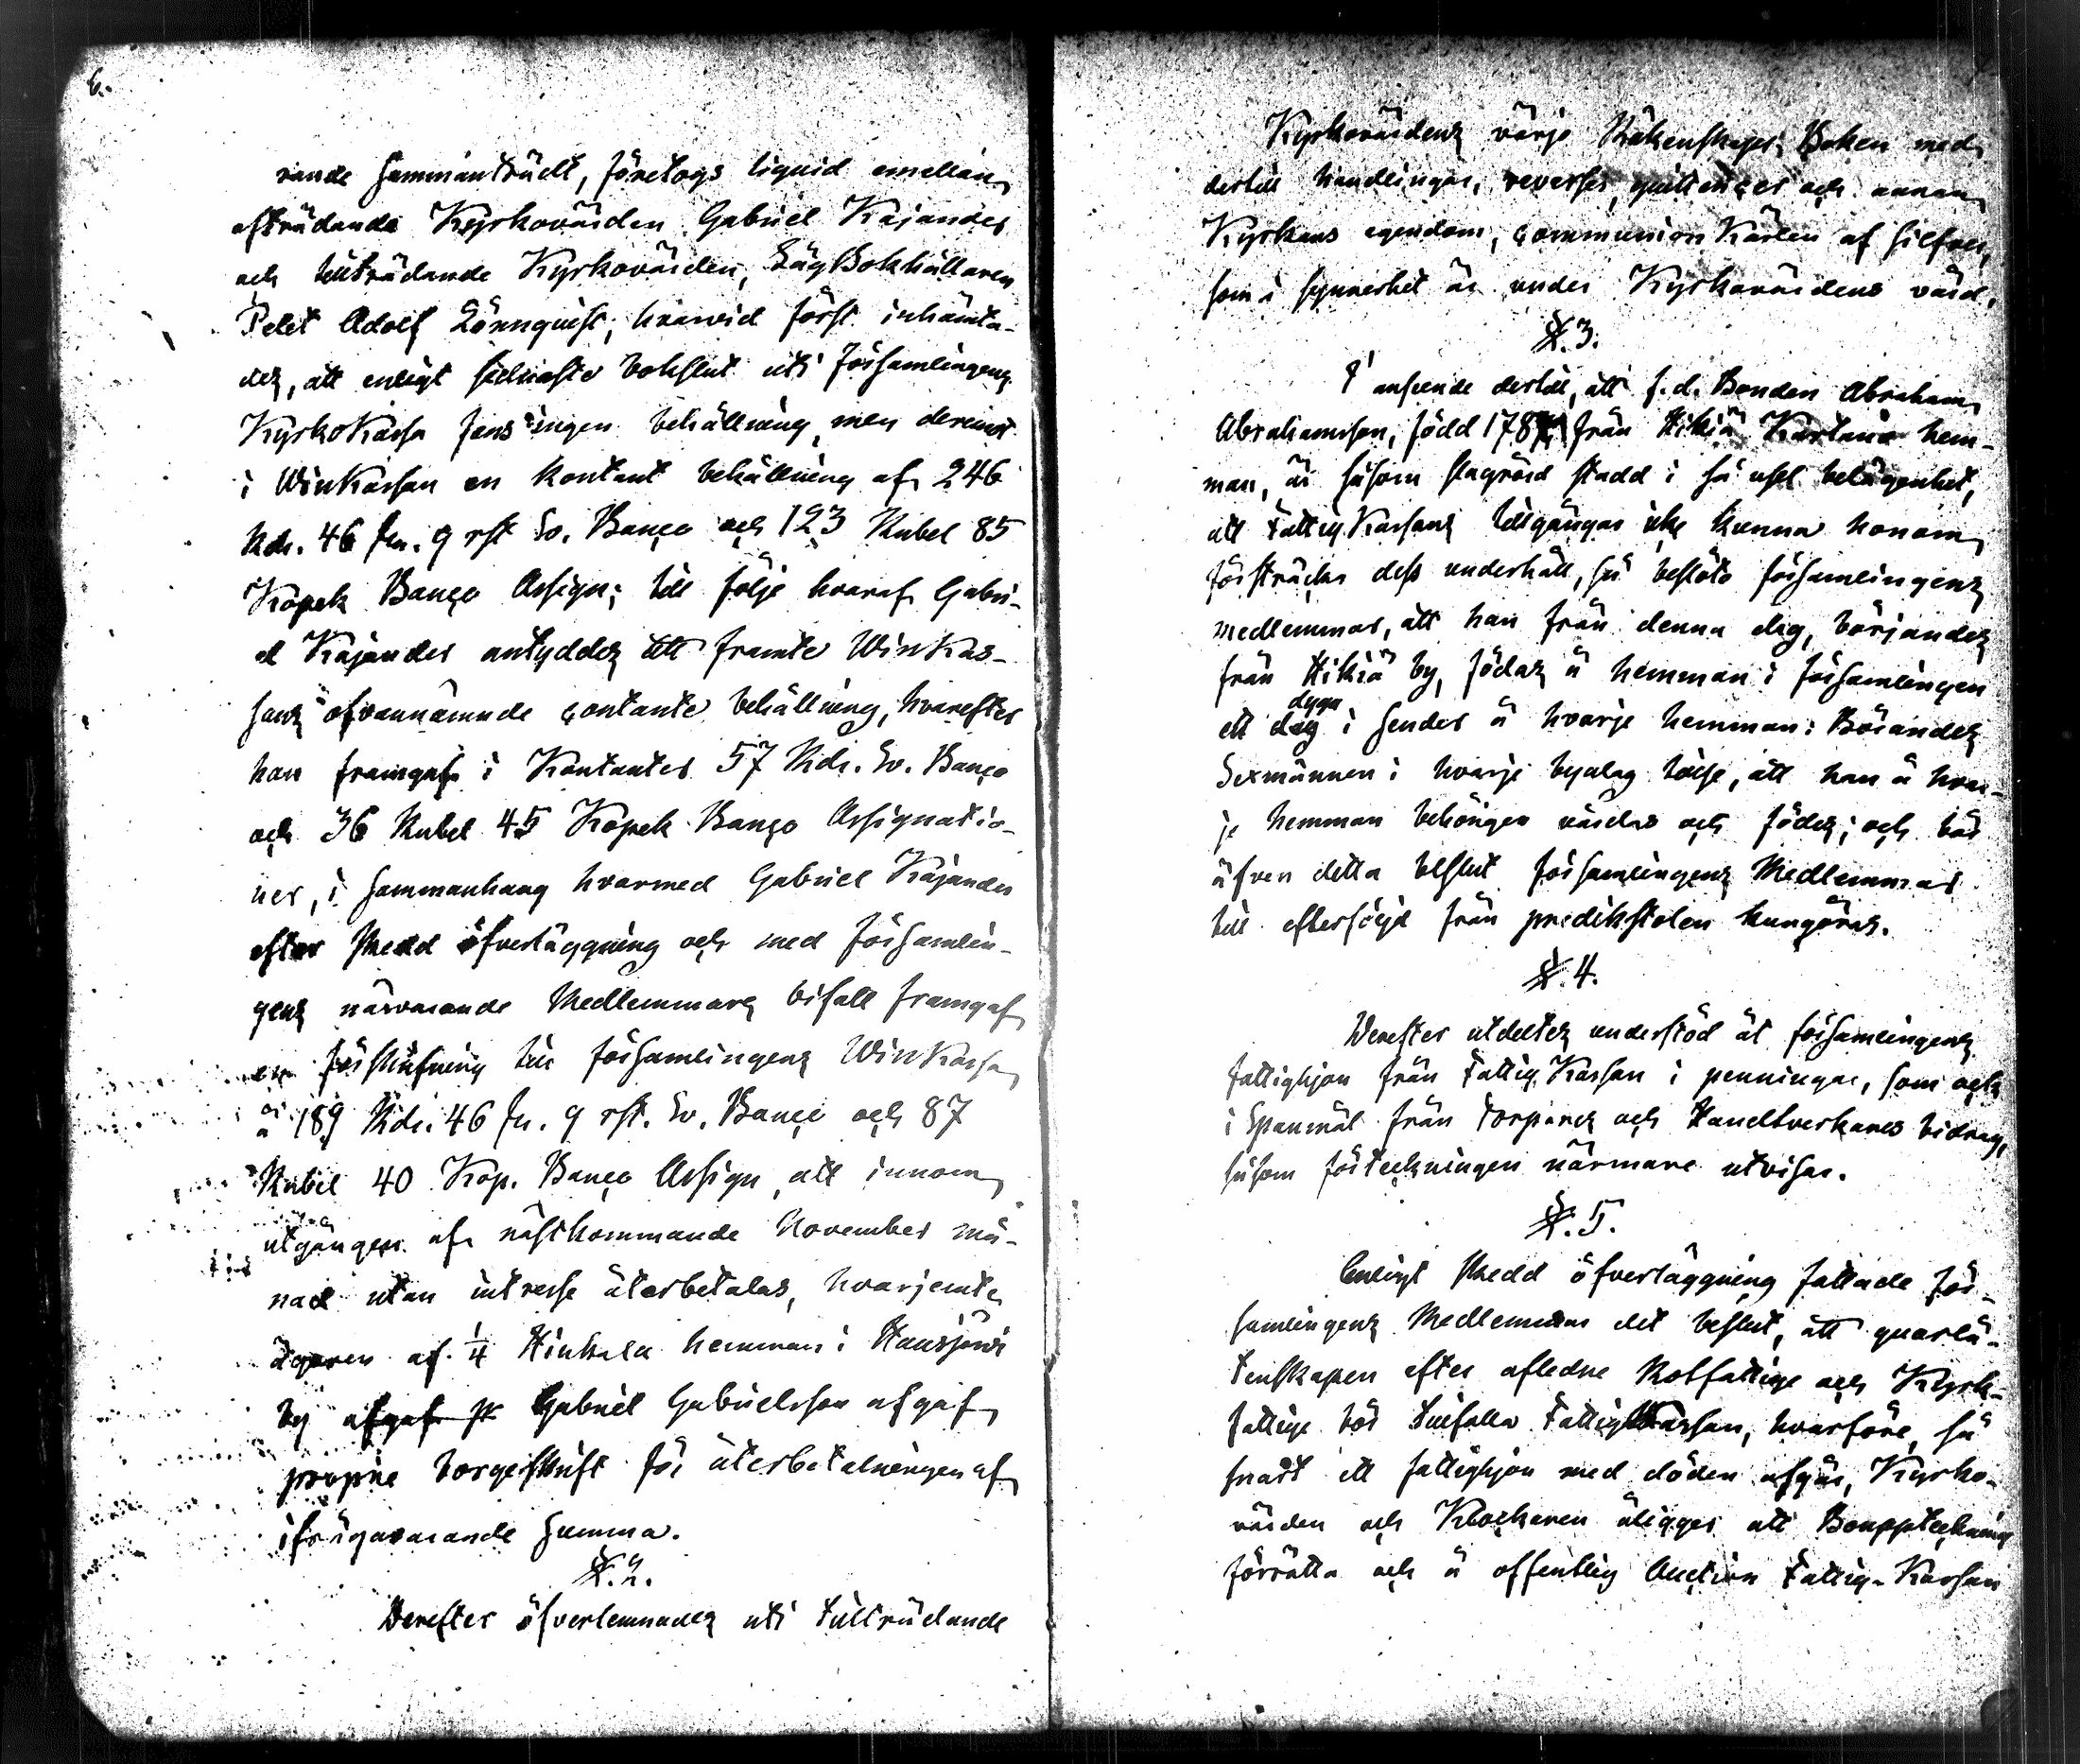 6.
rande sammanträdt, företogs liquid emellan
afträdande Kyrkovärden Gabriel Kajander
och tillträdande Kyrkovärden, SågBokhållaren
Petet Adolf Lönnquist, hvarvid först inhämta-
des, att enligt sednaste bokslut uti Församlingens
KyrkoKassa fans ingen behållning, men deremot
i WinKassan en kontant behållning af 246
Rdr. 46 sk. 9 rst Sv. Banco och 123 Rubel 85
Kopek Banco Assign; till följe hvaraf Gabri-
el Kajander antyddes att framte WinKas-
sans ofvannämnde contante behållning, hvarefter
han framgaf i Kontanter 57 Rdr. Sv. Banco
och 36 Rubel 45 Kopek Banco Assignatio-
ner, i sammanhang hvarmed Gabriel Kajander
efter skedd öfverläggning och med församlin-
gens närvarande Medlemmars bifall framgaf
en förskrifning till församlingens WinKassa
å 189 Rdr. 46 sk. 9 rst. Sv. Banco och 87
Rubel 40 Kop. Banco Assign, att innom
utgången af nästkommande November må-
nad utan intresse återbetalas, hvarjemte
ägaren af 1/4 Hinkala hemman i Hausjärvi
by afgaf Gabriel Gabrielsson afgaf
proprie borgeskrift för återbetalningen af
ifrågavarande summa.
§. 2.
Derefter öfverlemnades uti tillträdande
Kyrkovärdens värjo Räkenskaps Boken med
dertill handlingar, reverser, quittencer och annan
Kyrkans egendom, communion Kärlen af silfver,
som i synnerhet är under Kyrkovärdens vård.
§. 3.
I anseende dertill, att f.d. Bonden Abraham
Abrahamsson, född 178 från Hikiä Kartano hem-
man, är såsom slagrörd stadd i så usel belägenhet,
att FattigKassans tillgångar icke kunna honom
försträcka dess underhåll, så beslöto församlingens
medlemmar, att han från denna dag, börjandes
från Hikiä by, födas å hemman i församlingen
dygn
ett dag i sender å hvarje hemman: Börandes
Sexmännen i hvarje byalag tillse, att han å hvar-
je hemman behörigen vårdas och födes; och bör
äfven detta beslut församlingens Medlemmar
till efterföljd från predikstolen kungöras.
§. 4.
Derefter utdeltes understöd åt församlingens
fattighjon från Fattig Kassan i penningar, som ock
i Spanmål från Torpares och Handtverkares bidrag,
såsom förteckningen närmare utvisar.
§. 5.
Enligt skedd öfverläggning fattade för-
samlingens Medlemmar det beslut, att quarlå-
tenskapen efter aflidne Rotfattige och Kyrk-
fattige bör tillfalla FattigKassan, hvarföre, så
snart ett fattighjon med döden afgår, Kyrko-
värden och Klockaren åligger att Bouppteckning
förrätta och å offentlig Auction Fattig-Kassan